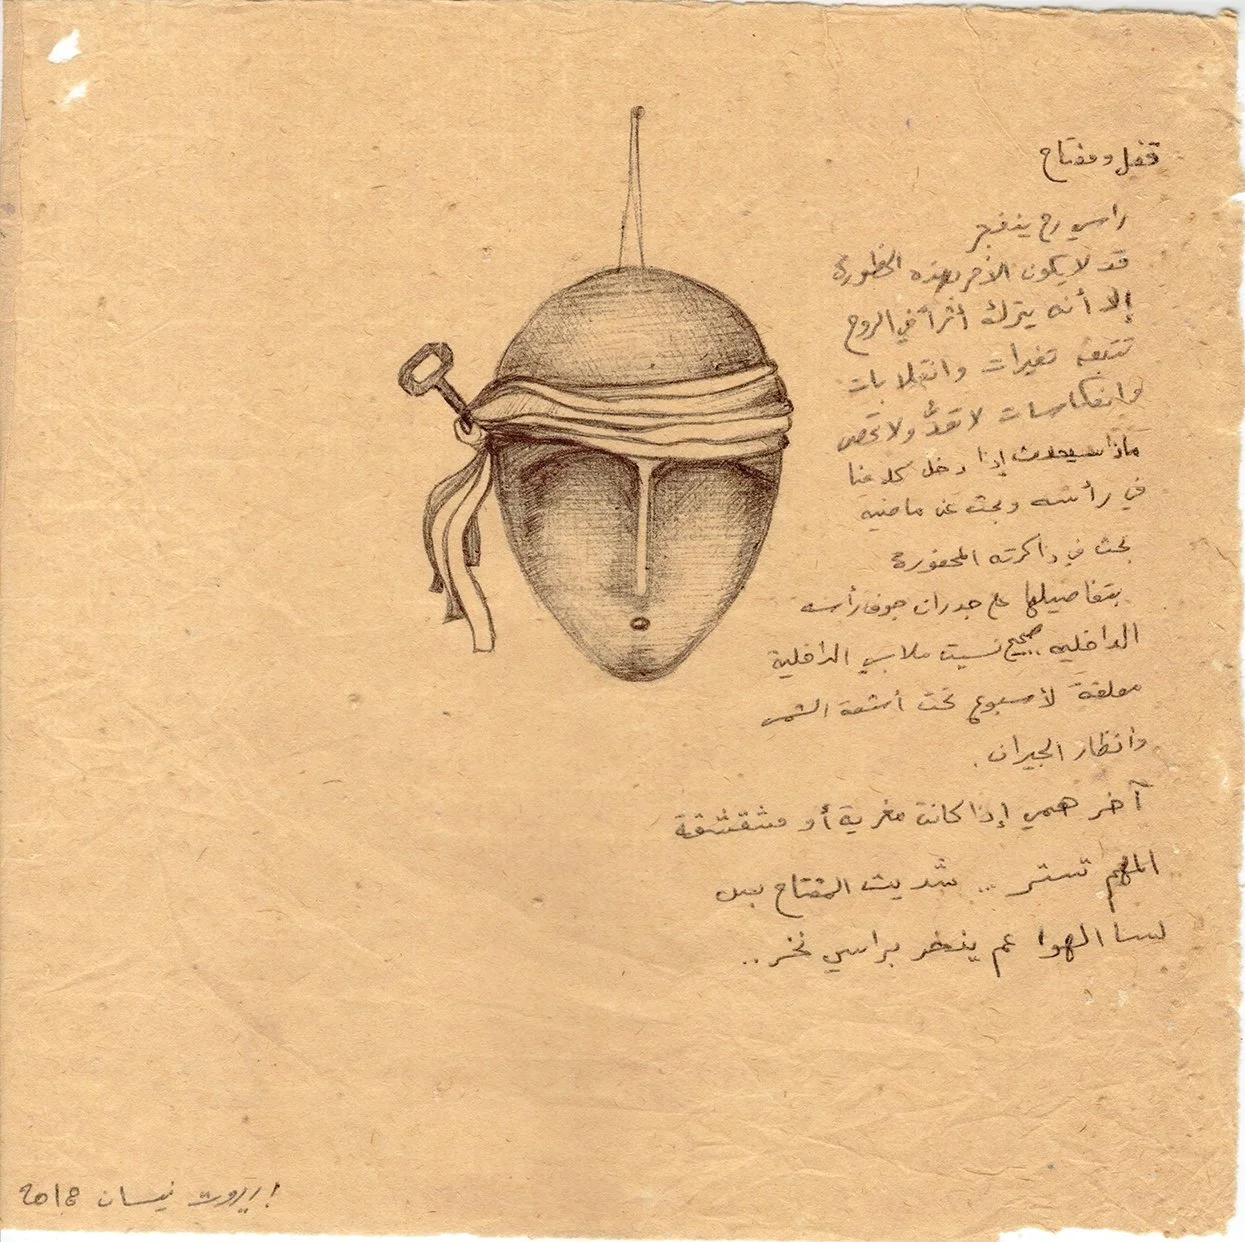 قفل ومفتاح
راسي رح ينفجر
قد لا يكون الأمر بهذه الخطورة
إلا أنه يترك أثراً في الروح
تتبعه تغيرات وانقلابات
وانعكاسات لا تعدُّ ولا تحصى
ماذا سيحدث إذا دخل كل منا
في رأسه وبحث عن ماضيه
بحث في ذاكرته المحفورة
بتفاصيلها على جدران جوف رأسه
الداخلية .. صحيح نسيت ملابسي الداخلية
معلقة لأسبوع تحت أشعة الشمس
وانظار الجيران.
آخر همي إذا كانت مغرية أو مشقشقة
المهم تستر .. شديت المفتاح بس
لسا الهوا عم ينخر براسي نخر ..
بيروت نيسان 2018